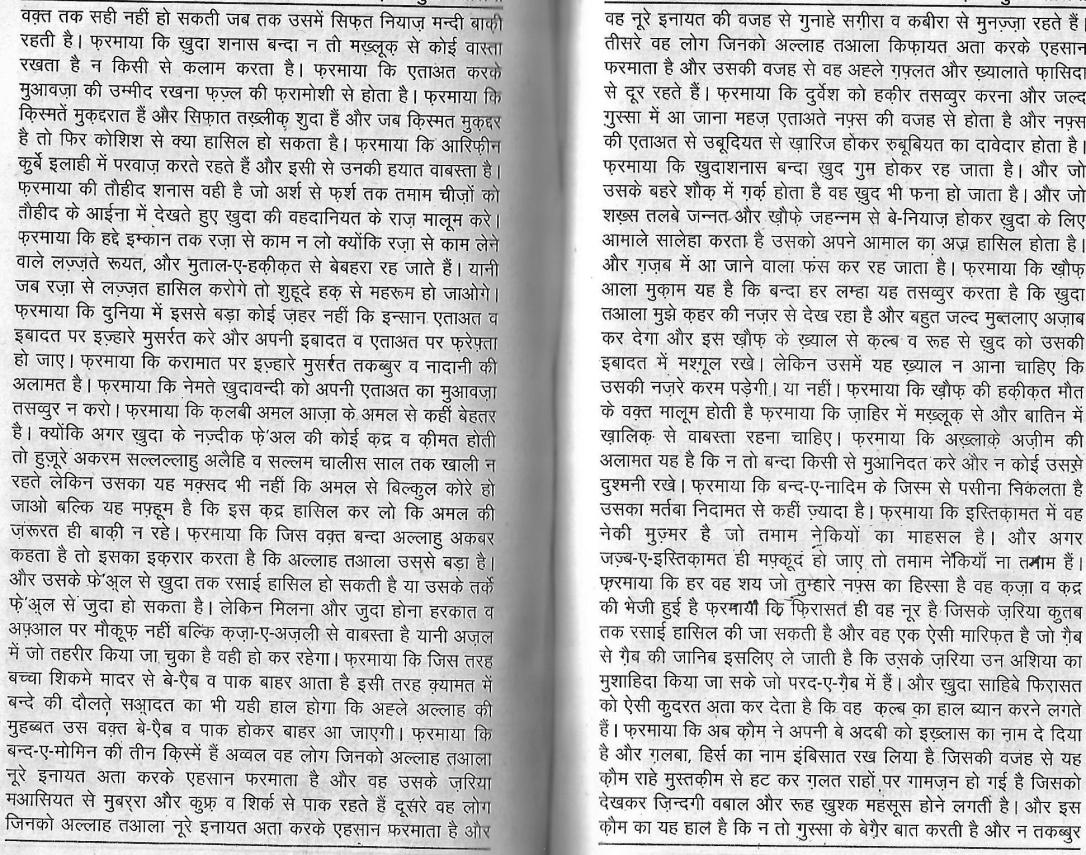 वक़्त तक सही नहीं हो सकती जब तक उसमें सिफ़त नियाज़ मन्दी बाकी
रहती है। फ़रमाया कि ख़ुदा शनास बन्दा न तो मख़्लूक़ से कोई वास्ता
रखता है न किसी से कलाम करता है। फ़रमाया कि एताअत करके
मुआवज़ा की उम्मीद रखना फ़ज़्ल की फ़रामोशी से होता है। फ़रमाया कि
क़िस्मतें मुक़द्दरात हैं और सिफ़ात तख़्लीक़ शुदा हैं और जब क़िस्मत मुक़द्दर
है तो फिर कोशिश से क्या हासिल हो सकता है। फ़रमाया कि आरिफ़ीन
कुर्बे इलाही में परवाज़ करते रहते हैं और इसी से उनकी हयात वाबस्ता है।
फ़रमाया की तौहीद शनास वही है जो अर्श से फ़र्श तक तमाम चीज़ों को
तौहीद के आईना में देखते हुए ख़ुदा की वहदानियत के राज़ मालूम करे।
फ़रमाया कि हद्दे इम्कान तक रज़ा से काम न लो क्योंकि रज़ा से काम लेने
वाले लज़्ज़ते रूयत, और मुताल-ए-हक़ीक़त से बेबहरा रह जाते हैं। यानी
जब रज़ा से लज़्ज़त हासिल करोगे तो शुहूदे हक़ से महरूम हो जाओगे।
फ़रमाया कि दुनिया में इससे बड़ा कोई ज़हर नहीं कि इन्सान एताअत व
इबादत पर इज़्हारे मुसर्रत करे और अपनी इबादत व एताअत पर फ़रेफ़्ता
हो जाए। फ़रमाया कि करामात पर इज़्हारे मुसर्रत तकब्बुर व नादानी की
अलामत है। फ़रमाया कि नेमते ख़ुदावन्दी को अपनी एताअत का मुआवज़ा
तसव्वुर न करो। फ़रमाया कि क़लबी अमल आज़ा के अमल से कहीं बेहतर
है। क्योंकि अगर ख़ुदा के नज़्दीक फ़े'अल की कोई क़द्र व क़ीमत होती
तो हुज़ूरे अकरम सल्लल्लाहु अलैहि व सल्लम चालीस साल तक खाली न
रहते लेकिन उसका यह मक़्सद भी नहीं कि अमल से बिल्कुल कोरे हो
जाओ बल्कि यह मफ़्हूम है कि इस क़द्र हासिल कर लो कि अमल की
ज़रूरत ही बाक़ी न रहे। फ़रमाया कि जिस वक़्त बन्दा अल्लाहु अकबर
कहता है तो इसका इक़रार करता है कि अल्लाह तआला उससे बड़ा है।
और उसके फे'अ़ल से ख़ुदा तक रसाई हासिल हो सकती है या उसके तर्के
फ़े'अ़ल से जुदा हो सकता है। लेकिन मिलना और जुदा होना हरकात व
अफ़्आल पर मौक़ूफ़ नहीं बल्कि क़ज़ा-ए-अज़ली से वाबस्ता है यानी अज़ल
में जो तहरीर किया जा चुका है वही हो कर रहेगा। फ़रमाया कि जिस तरह
बच्चा शिकमे मादर से बे-ऐब व पाक बाहर आता है इसी तरह क़्यामत में
बन्दे की दौलते सआ़दत का भी यही हाल होगा कि अह्ले अल्लाह की
मुहब्बत उस वक़्त बे-ऐब व पाक होकर बाहर आ जाएगी। फ़रमाया कि
बन्द-ए-मोमिन की तीन क़िस्में हैं अव्वल वह लोग जिनको अल्लाह तआला
नूरे इनायत अता करके एहसान फ़रमाता है और वह उसके ज़रिया
मआसियत से मुबर्रा और कुफ़्र व शिर्क से पाक रहते हैं दूसरे वह लोग
जिनको अल्लाह तआला नूरे इनायत अता करके एहसान फरमाता है और
वह नूरे इनायत की वजह से गुनाहे सग़ीरा व कबीरा से मुनज़्ज़ा रहते हैं।
तीसरे वह लोग जिनको अल्लाह तआला किफ़ायत अता करके एहसान
फ़रमाता है और उसकी वजह से वह अह्ले ग़फ़्लत और ख़्यालाते फ़ासिदा
से दूर रहते हैं। फ़रमाया कि दुर्वेश को हक़ीर तसव्वुर करना और जल्द
गुस्सा में आ जाना महज़ एताअते नफ़्स की वजह से होता है और नफ़्स
की एताअत से उबूदियत से ख़ारिज होकर रुबूबियत का दावेदार होता है।
फ़रमाया कि ख़ुदाशनास बन्दा ख़ुद गुम होकर रह जाता है। और जो
उसके बहरे शौक़ में ग़र्क़ होता है वह ख़ुद भी फना हो जाता है। और जो
शख़्स तलबे जन्नत और ख़ौफ़े जहन्नम से बे-नियाज़ होकर ख़ुदा के लिए
आमाले सालेहा करता है उसको अपने आमाल का अज्र हासिल होता है।
और ग़ज़ब में आ जाने वाला फंस कर रह जाता है। फ़रमाया कि ख़ौफ़
आला मुक़ाम यह है कि बन्दा हर लम्हा यह तसव्वुर करता है कि ख़ुदा
तआला मुझे क़हर की नज़र से देख रहा है और बहुत जल्द मुब्तलाए अज़ाब
कर देगा और इस ख़ौफ़ के ख़्याल से क़ल्ब व रूह से ख़ुद को उसकी
इबादत में मश्गूल रखे। लेकिन उसमें यह ख़्याल न आना चाहिए कि
उसकी नज़रे करम पड़ेगी। या नहीं। फ़रमाया कि ख़ौफ़ की हक़ीक़त मौत
के वक़्त मालूम होती है फ़रमाया कि ज़ाहिर में मख़्लूक़ से और बातिन में
ख़ालिक़ से वाबस्ता रहना चाहिए। फ़रमाया कि अख़्लाक़े अज़ीम की
अलामत यह है कि न तो बन्दा किसी से मुआनिदत करे और न कोई उससे
दुश्मनी रखे। फ़रमाया कि बन्द-ए-नादिम के जिस्म से पसीना निकलता है
उसका मर्तबा निदामत से कहीं ज़्यादा है। फ़रमाया कि इस्तिक़ामत में वह
नेकी मुज़्मर है जो तमाम नेकियों का माहसल है। और अगर
जज़्ब-ए-इस्तिक़ामत ही मफ़्कूद हो जाए तो तमाम नेकियाँ ना तमाम हैं।
फ़रमाया कि हर वह शय जो तुम्हारे नफ़्स का हिस्सा है वह क़ज़ा व क़द्र
की भेजी हुई है फ़रमाया कि फ़िरासत ही वह नूर है जिसके ज़रिया कुतब
तक रसाई हासिल की जा सकती है और वह एक ऐसी मारिफ़त है जो ग़ैब
से ग़ैब की जानिब इसलिए ले जाती है कि उसके ज़रिया उन अशिया का
मुशाहिदा किया जा सके जो परद-ए-ग़ैब में हैं। और ख़ुदा साहिबे फिरासत
को ऐसी क़ुदरत अ़ता कर देता है कि वह क़ल्ब का हाल ब्यान करने लगते
हैं। फ़रमाया कि अब क़ौम ने अपनी बे अदबी को इख़्लास का ना़म दे दिया
है और ग़लबा, हिर्स का नाम इंबिसात रख लिया है जिसकी वजह से यह
क़ौम राहे मुस्तक़ीम से हट कर ग़लत राहों पर गामज़न हो गई है जिसको
देखकर ज़िन्दगी वबाल और रूह ख़ुश्क महसूस होने लगती है। और इस
क़ौम का यह हाल है कि न तो गुस्सा के बेग़ैर बात करती है और न तकब्बुर